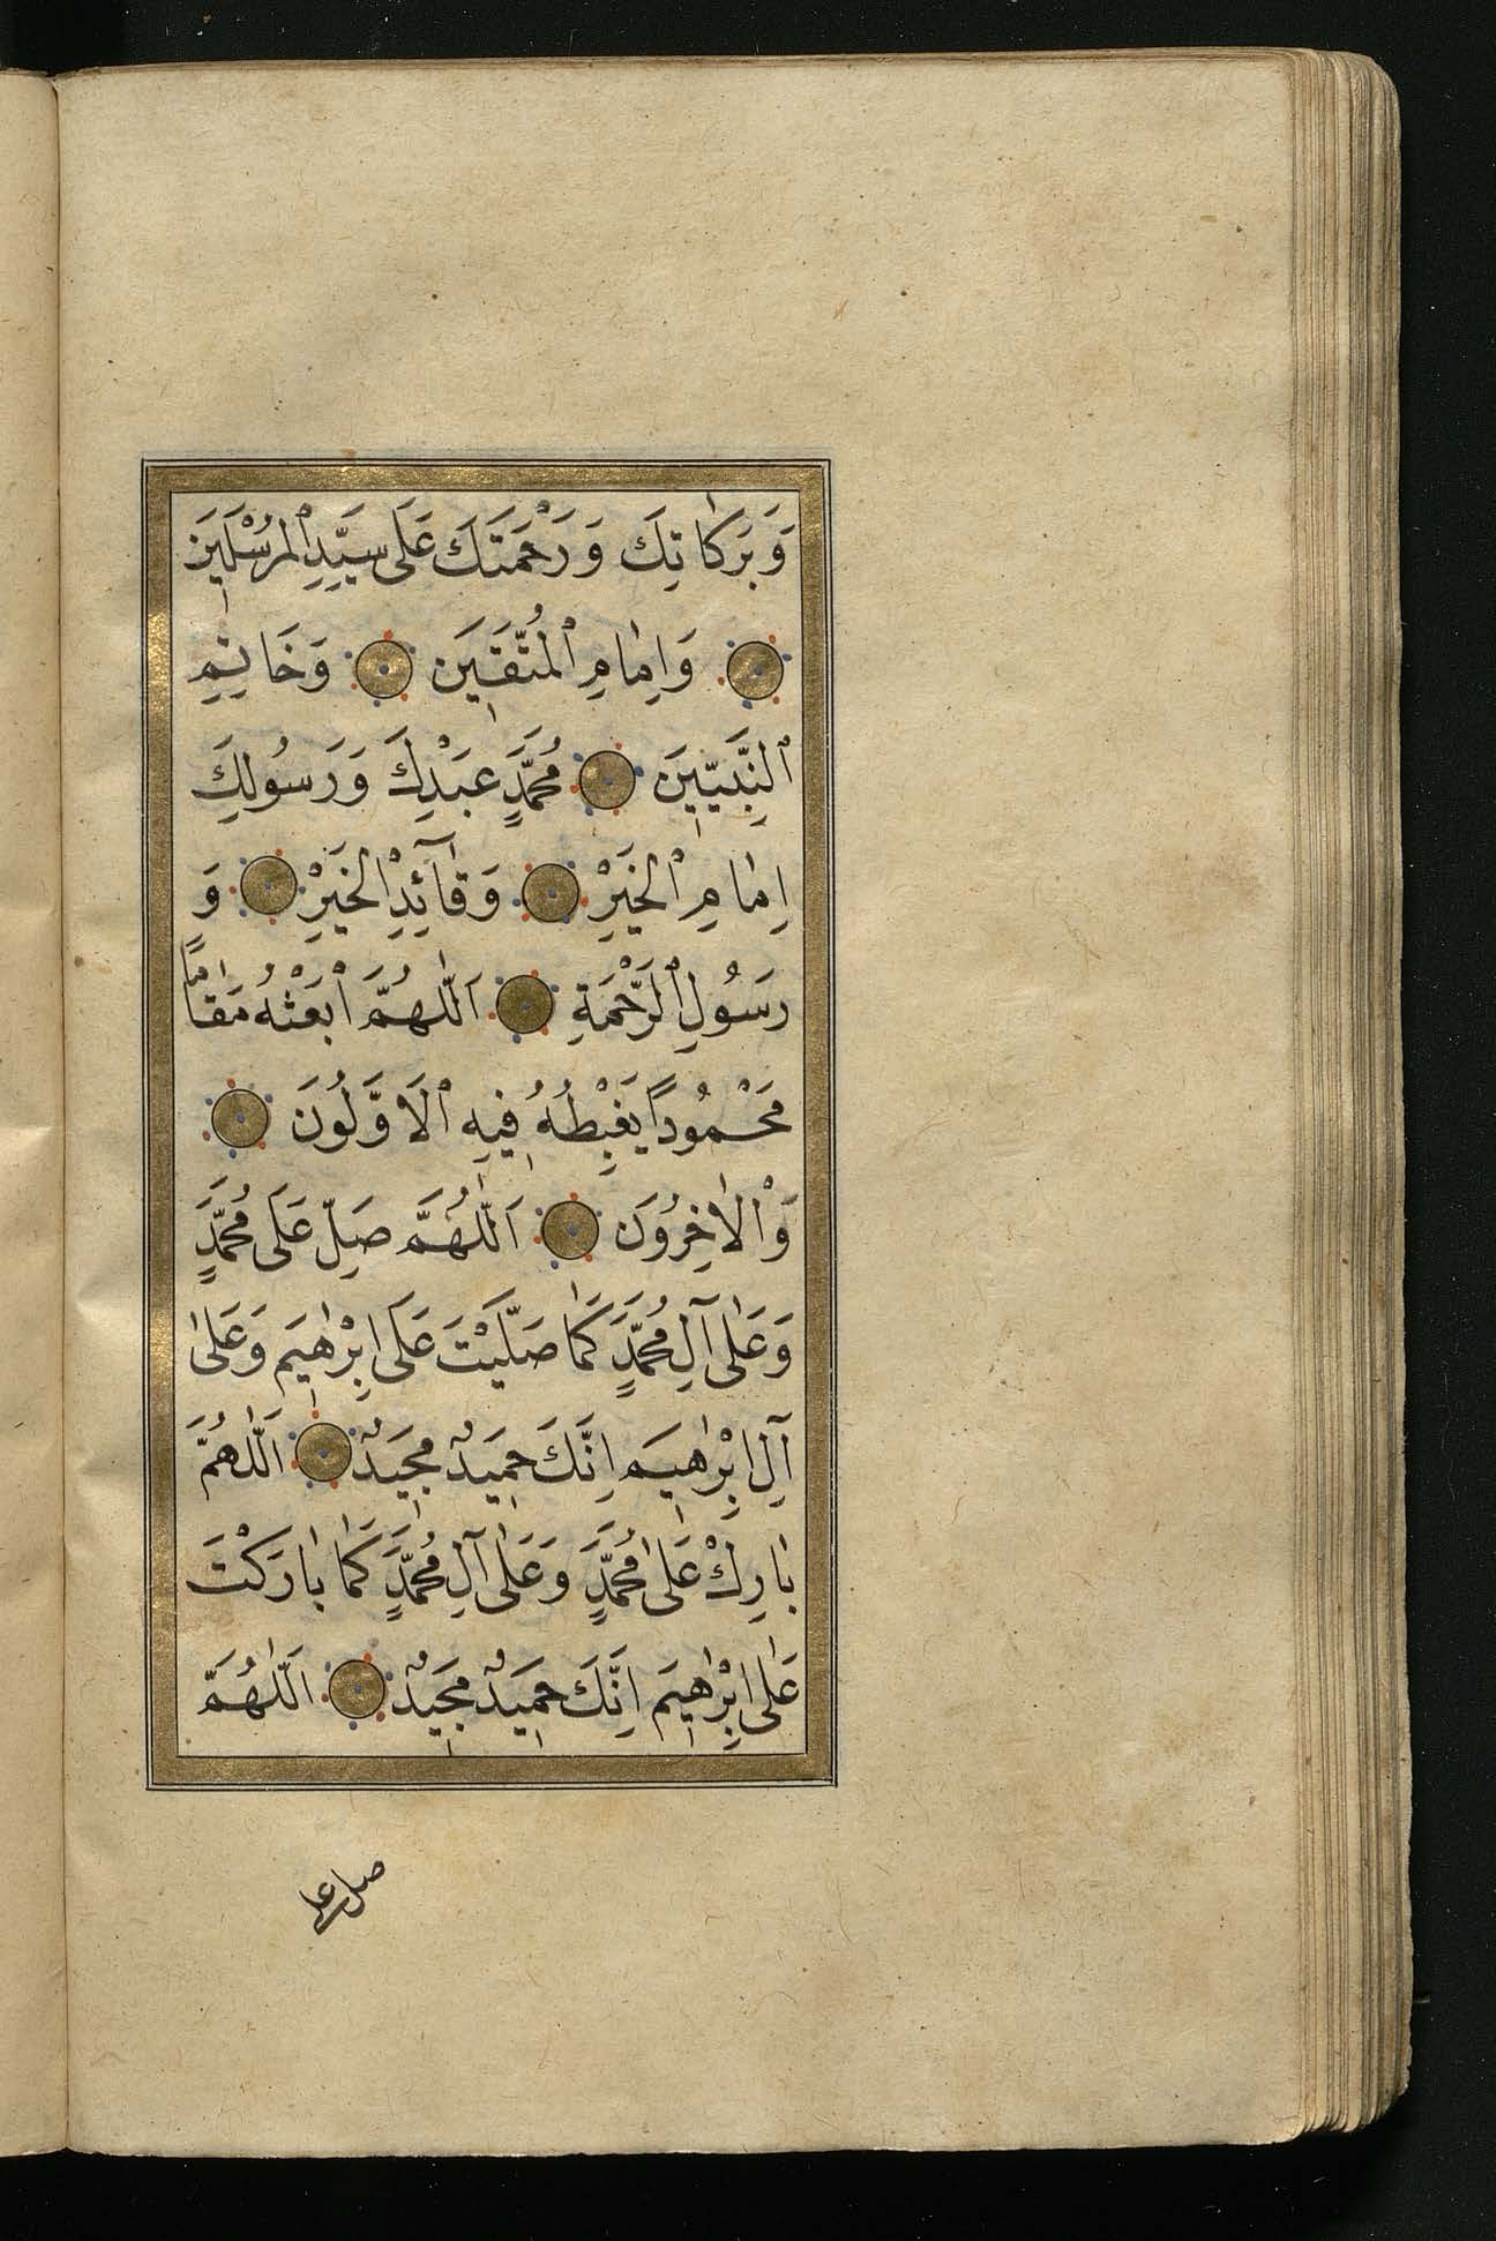 وَبَرَكَاتِكَ وَرَحْمَتَكَ عَلَى سَيِّدِ ٱلْمُرْسَلِينَ
وَاِمَامِ ٱلْمُتَّقِينَ وَخَاتِمِ
ٱلنَّبِيِّينَ مُحَمَّدٍ عَبْدِكَ وَرَسُولِكَ
اِمَامِ ٱلْخَيْرِ وَقَآئِدِ ٱلْخَيْرِ وَ
رَسُولِ ٱلرَّحْمَةِ اَللّٰهُمَّ ابْعَثْهُ مَقَامًا
مَحْمُودًا يَغْبِطُهُ فِيهِ ٱلْاَوَّلُونَ
وَٱلْاٰخِرُونَ اَللّٰهُمَّ صَلِّ عَلَى مُحَمَّدٍ
وَعَلٰى آلِ مُحَمَّدٍ كَمَا صَلَّيْتَ عَلَى اِبْرٰهِيمَ وَعَلٰى
آلِ اِبْرٰهِيمَ اِنَّكَ حَمِيدٌ مَجِيدٌ اَللّٰهُمَّ
بَارِكْ عَلٰى مُحَمَّدٍ وَعَلٰى آلِ مُحَمَّدٍ كَمَا بَارَكْتَ
عَلٰى اِبْرٰهِيمَ اِنَّكَ حَمِيدٌ مَجِيدٌ اَللّٰهُمَّ
صل على